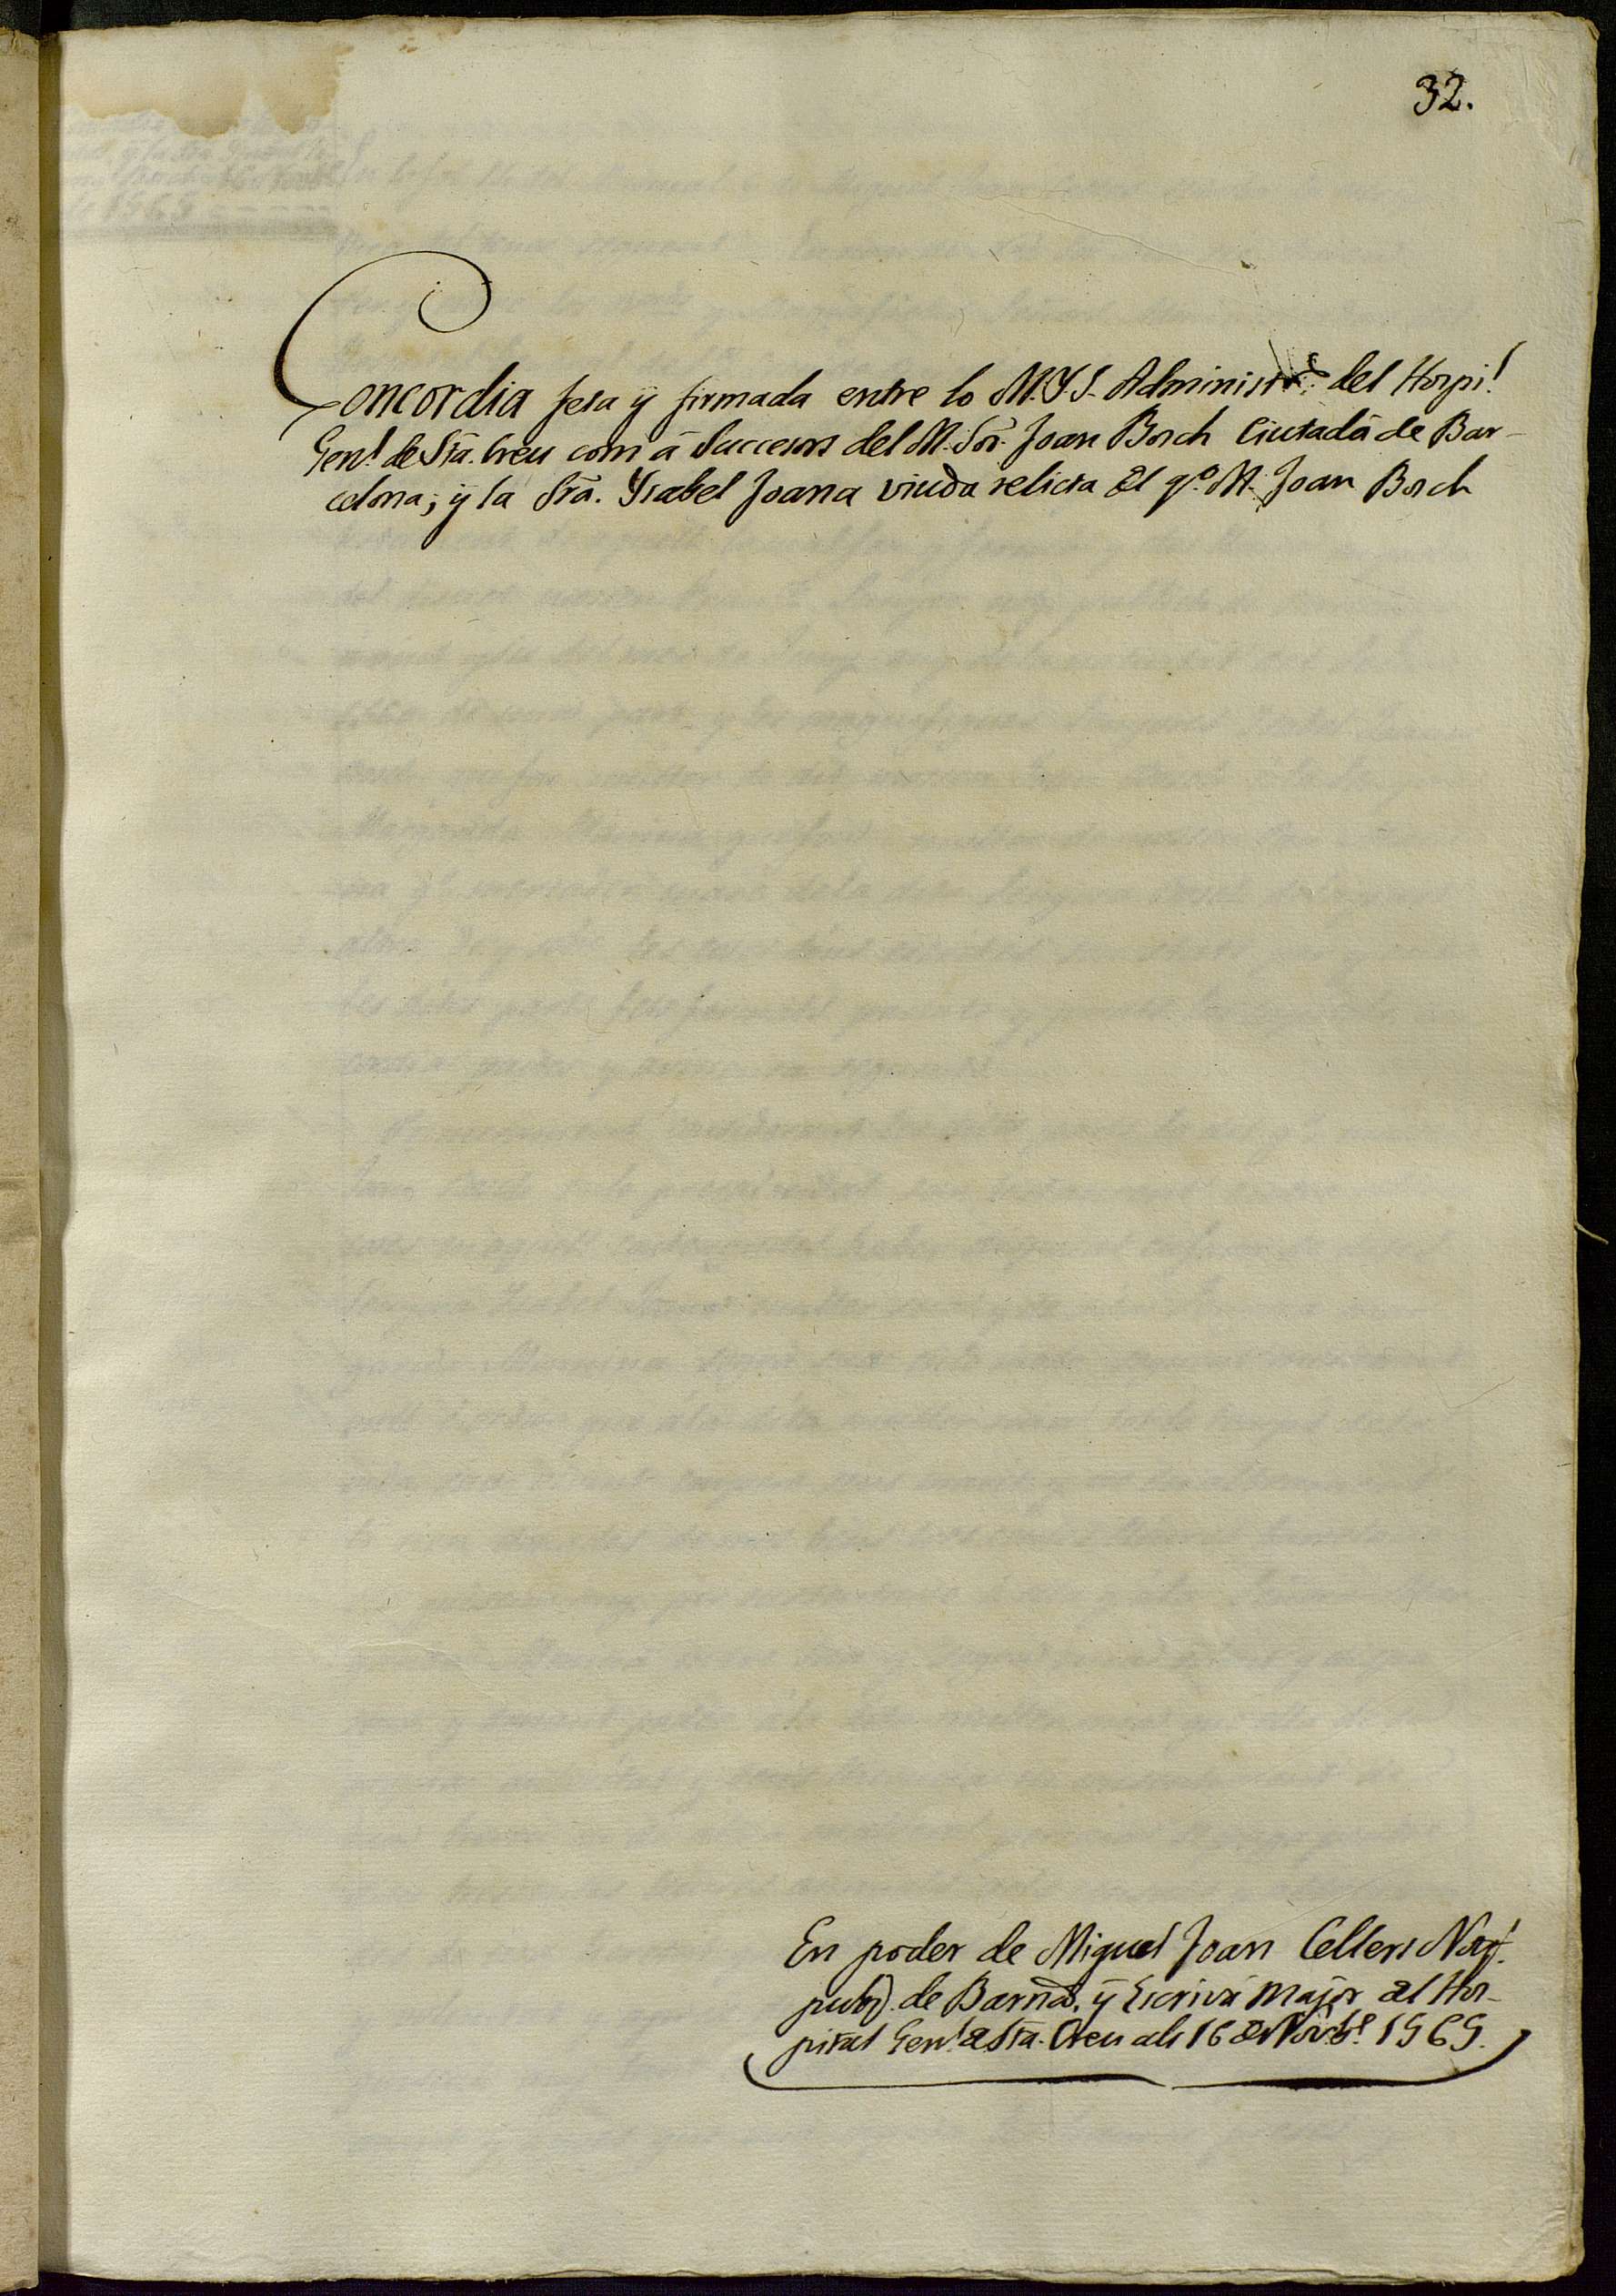 32.
Concordia feta ÿ firmada entre lo M.Y.S. Administrs. del Hospi.l
Gen.l de Sta. Creu com á Succesors del M. Sor. Joan Bosch Ciutadá de Bar-
celona; ÿ la Sra. Ysabel Joana viuda relicta del qo. M. Joan Bosch
En poder de Miguel Joan Cellers Not.
pubh. de Barna. ÿ Escrivá major del Hos-
pital Gen.l de Sta. Creu als 16 de Novbe. 1569.